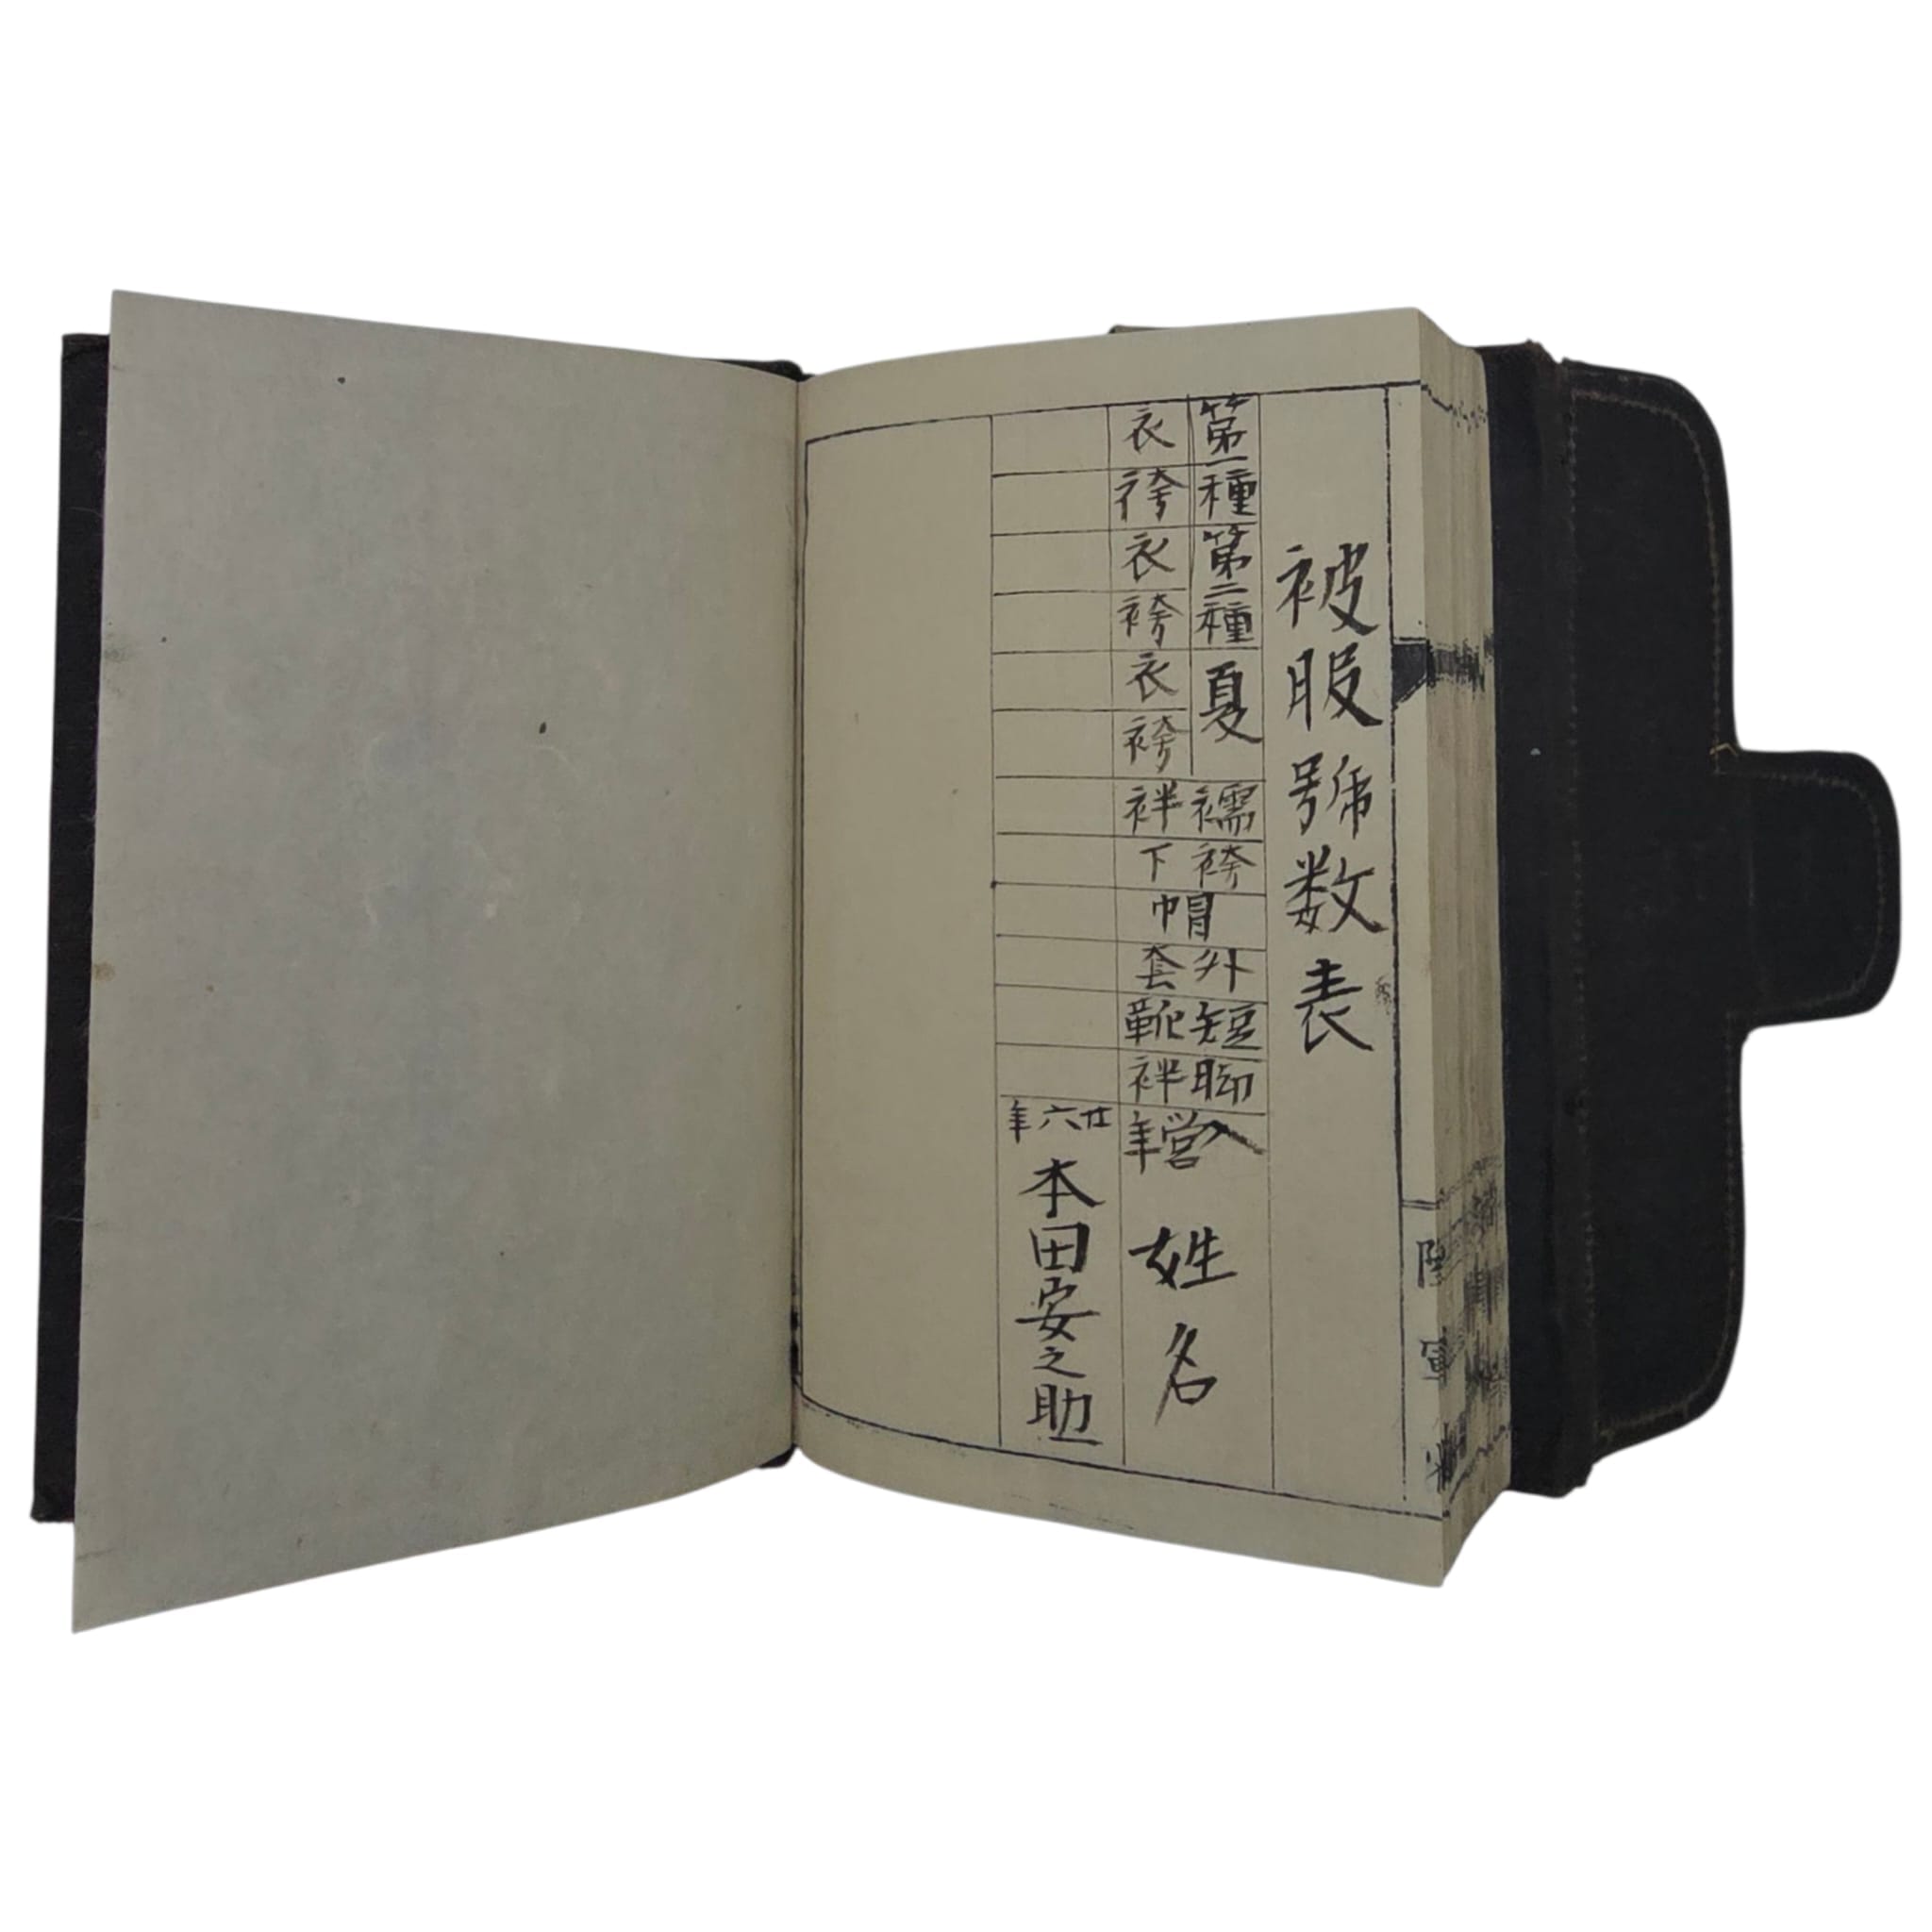 被服號数表
第一種
衣
袴
第二種
衣
袴
夏
衣
袴
襦袢
袴下
帽
外套
短靴
脚袢
入営年
姓名
廿六年
本田安之助
陸軍